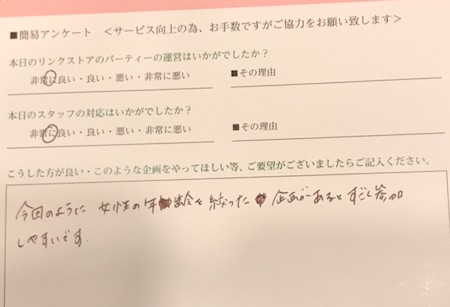 ■簡易アンケート　＜サービス向上の為、お手数ですがご協力をお願い致します＞
本日のリンクストアのパーティーの運営はいかがでしたか？
非常に良い・良い・悪い・非常に悪い　■その理由
本日のスタッフの対応はいかがでしたか？
非常に良い・良い・悪い・非常に悪い　■その理由
こうした方が良い・このような企画をやってほしい等、ご要望がございましたらご記入ください。
今回のように 女性の年齢を絞った 企画があるとすごく参加
しやすいです.